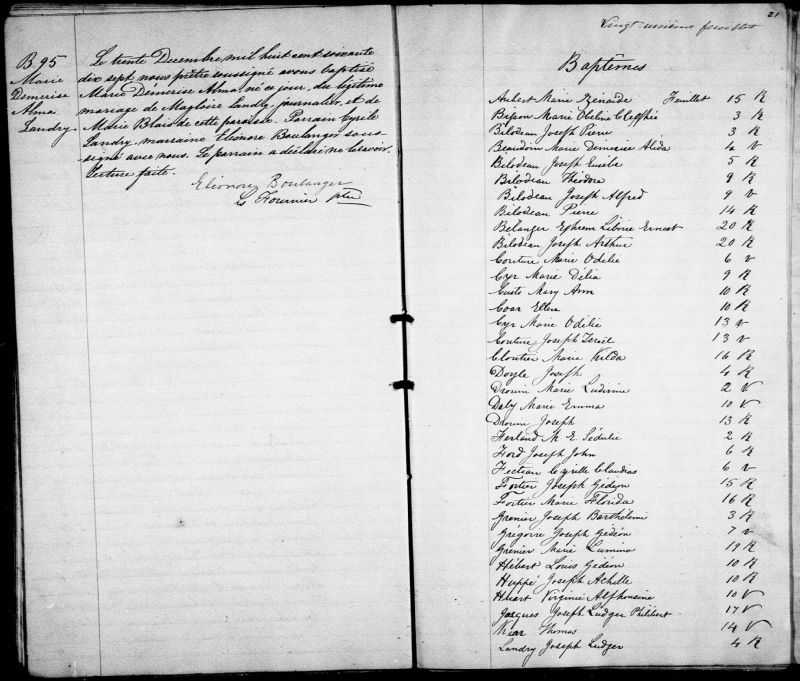 B. 95
Marie
Demerise
Alma
Landry
Le trente Decembre mil huit cent soixante
dix sept nous prêtre soussigné avons baptisé
Marie Démerise Alma, né ce jour, du légitime
mariage de Magloire Landry, journalier, et de
Marie Blais de cette paroisse. Parrain Cyrile
Landry, marraine Elionore Boulanger sous-
signé avec nous. Le parrain a déclaré ne le savoir.
Lecture faite.
Elionore Boulanger
Fournier ptre
21
Vingt unième feuillet
Baptêmes
Aubert Marie Zénaïde Feuillet 15 R
Bisson Marie 3 R
Bilodeau Joseph Pierre 3 R
Beaudoin Marie Demerise Alida 4 V
Bilodeau Joseph Eusèbe 5 R
Bilodeau Théodore 9 R
Bilodeau Joseph Alfred 9 V
Bilodeau Pierre 14 R
Bélanger Ephrem Liborie Ernest 20 R
Bilodeau Joseph Arthur 20 R
Couture Marie Odélie 6 V
Cyr Marie Délia 9 R
Mary Ann 10 R
Ellen 10 R
Cyr Marie Odélie 13 V
Couture Joseph Israël 13 V
Cloutier Marie Exilda 16 R
Doyle Joseph 4 R
Drouin Marie Ludivine 2 V
Daly Marie Emma 10 V
Drouin Joseph 13 R
Ferland M. E. Sédulie 2 R
Ford Joseph John 6 R
Fecteau Cyrille Claudias 6 V
Fortier Joseph Gédéon 15 R
Fortier Marie Florida 16 R
Grenier Joseph Barthélémi 3 R
Grégoire Joseph Gédéon 7 V
Grenier Marie Lumina 19 R
Hébert Louis Gédéon 10 R
Huppé Joseph Achille 10 R
Huart Virginie Alphonsine 10 V
Jacques Joseph Ludger Philibert 17 V
Thomas 14 V
Landry Joseph Ludger 4 R